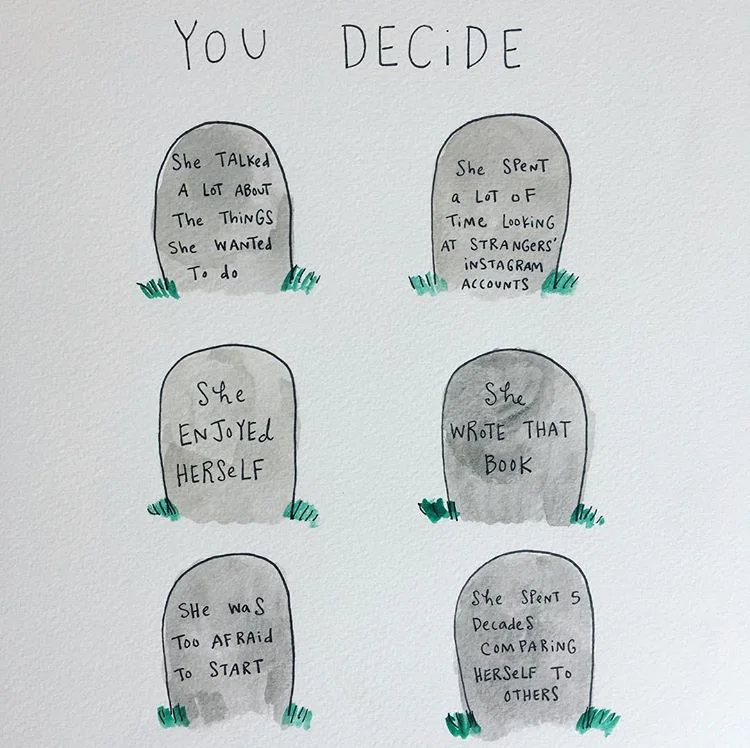 YOU DECiDE
She TALKed
A LoT ABouT
The ThiNGS
She WANTed
To do
She SPeNT
a LoT oF
Time LooKiNG
AT STRANGeRS'
iNSTAGRAM
ACCOUNTS
She
ENJoYEd
HERSeLF
She
WRoTE THAT
BOOK
SHe WaS
Too AFRAid
To START
She SPeNT 5
DecadeS
COMPARiNG
HERSeLF To
OTHERS